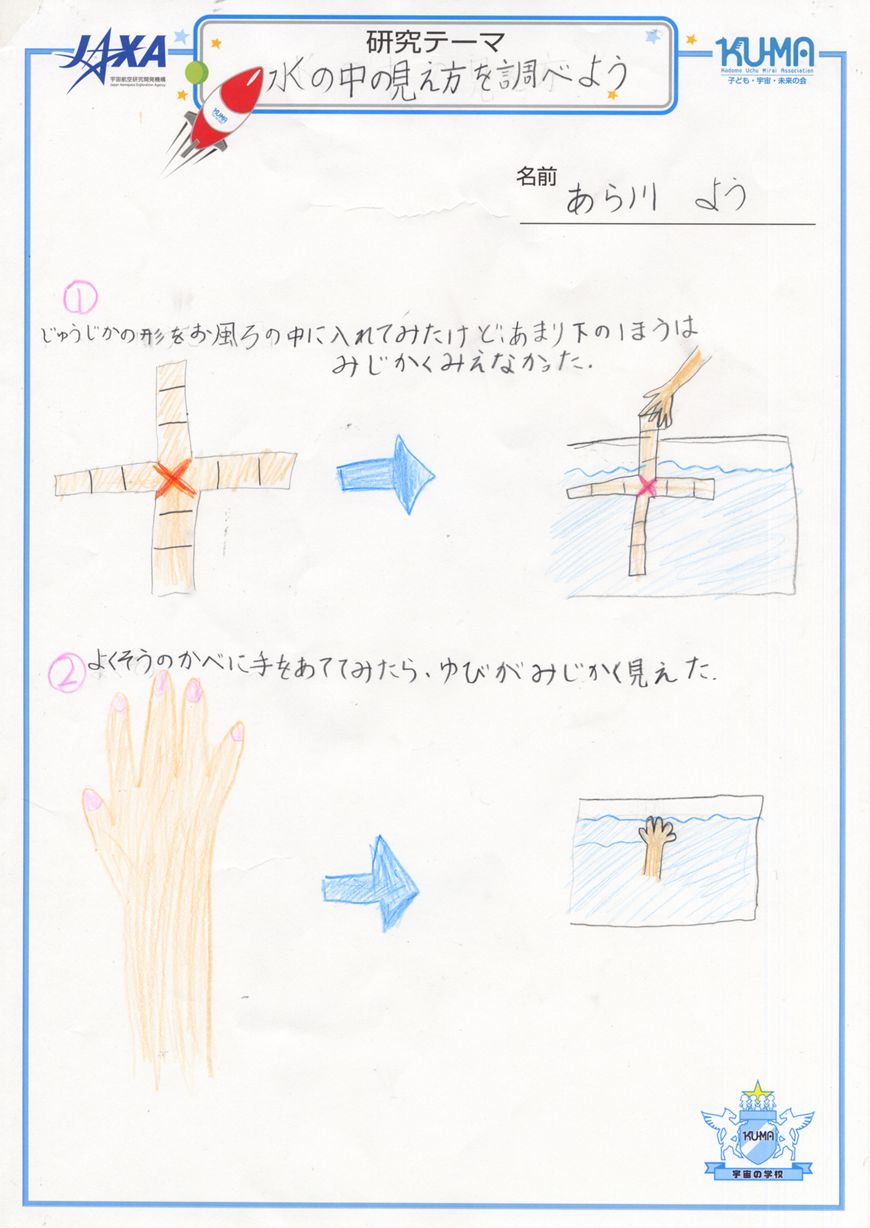 JAXA
宇宙航空研究開発機構
Japan Aerospace Exploration Agency
研究テーマ
水の中の見え方を調べよう
KUMA
KU-MA
Kodomo Uchu Mirai Association
子ども・宇宙・未来の会
名前 あら川 よう
①
じゅうじかの形をお風ろの中に入れてみたけど、あまり下のほうは
みじかくみえなかった.
② よくそうのかべに手をあててみたら、ゆびがみじかく見えた.
KU-MA
宇宙の学校